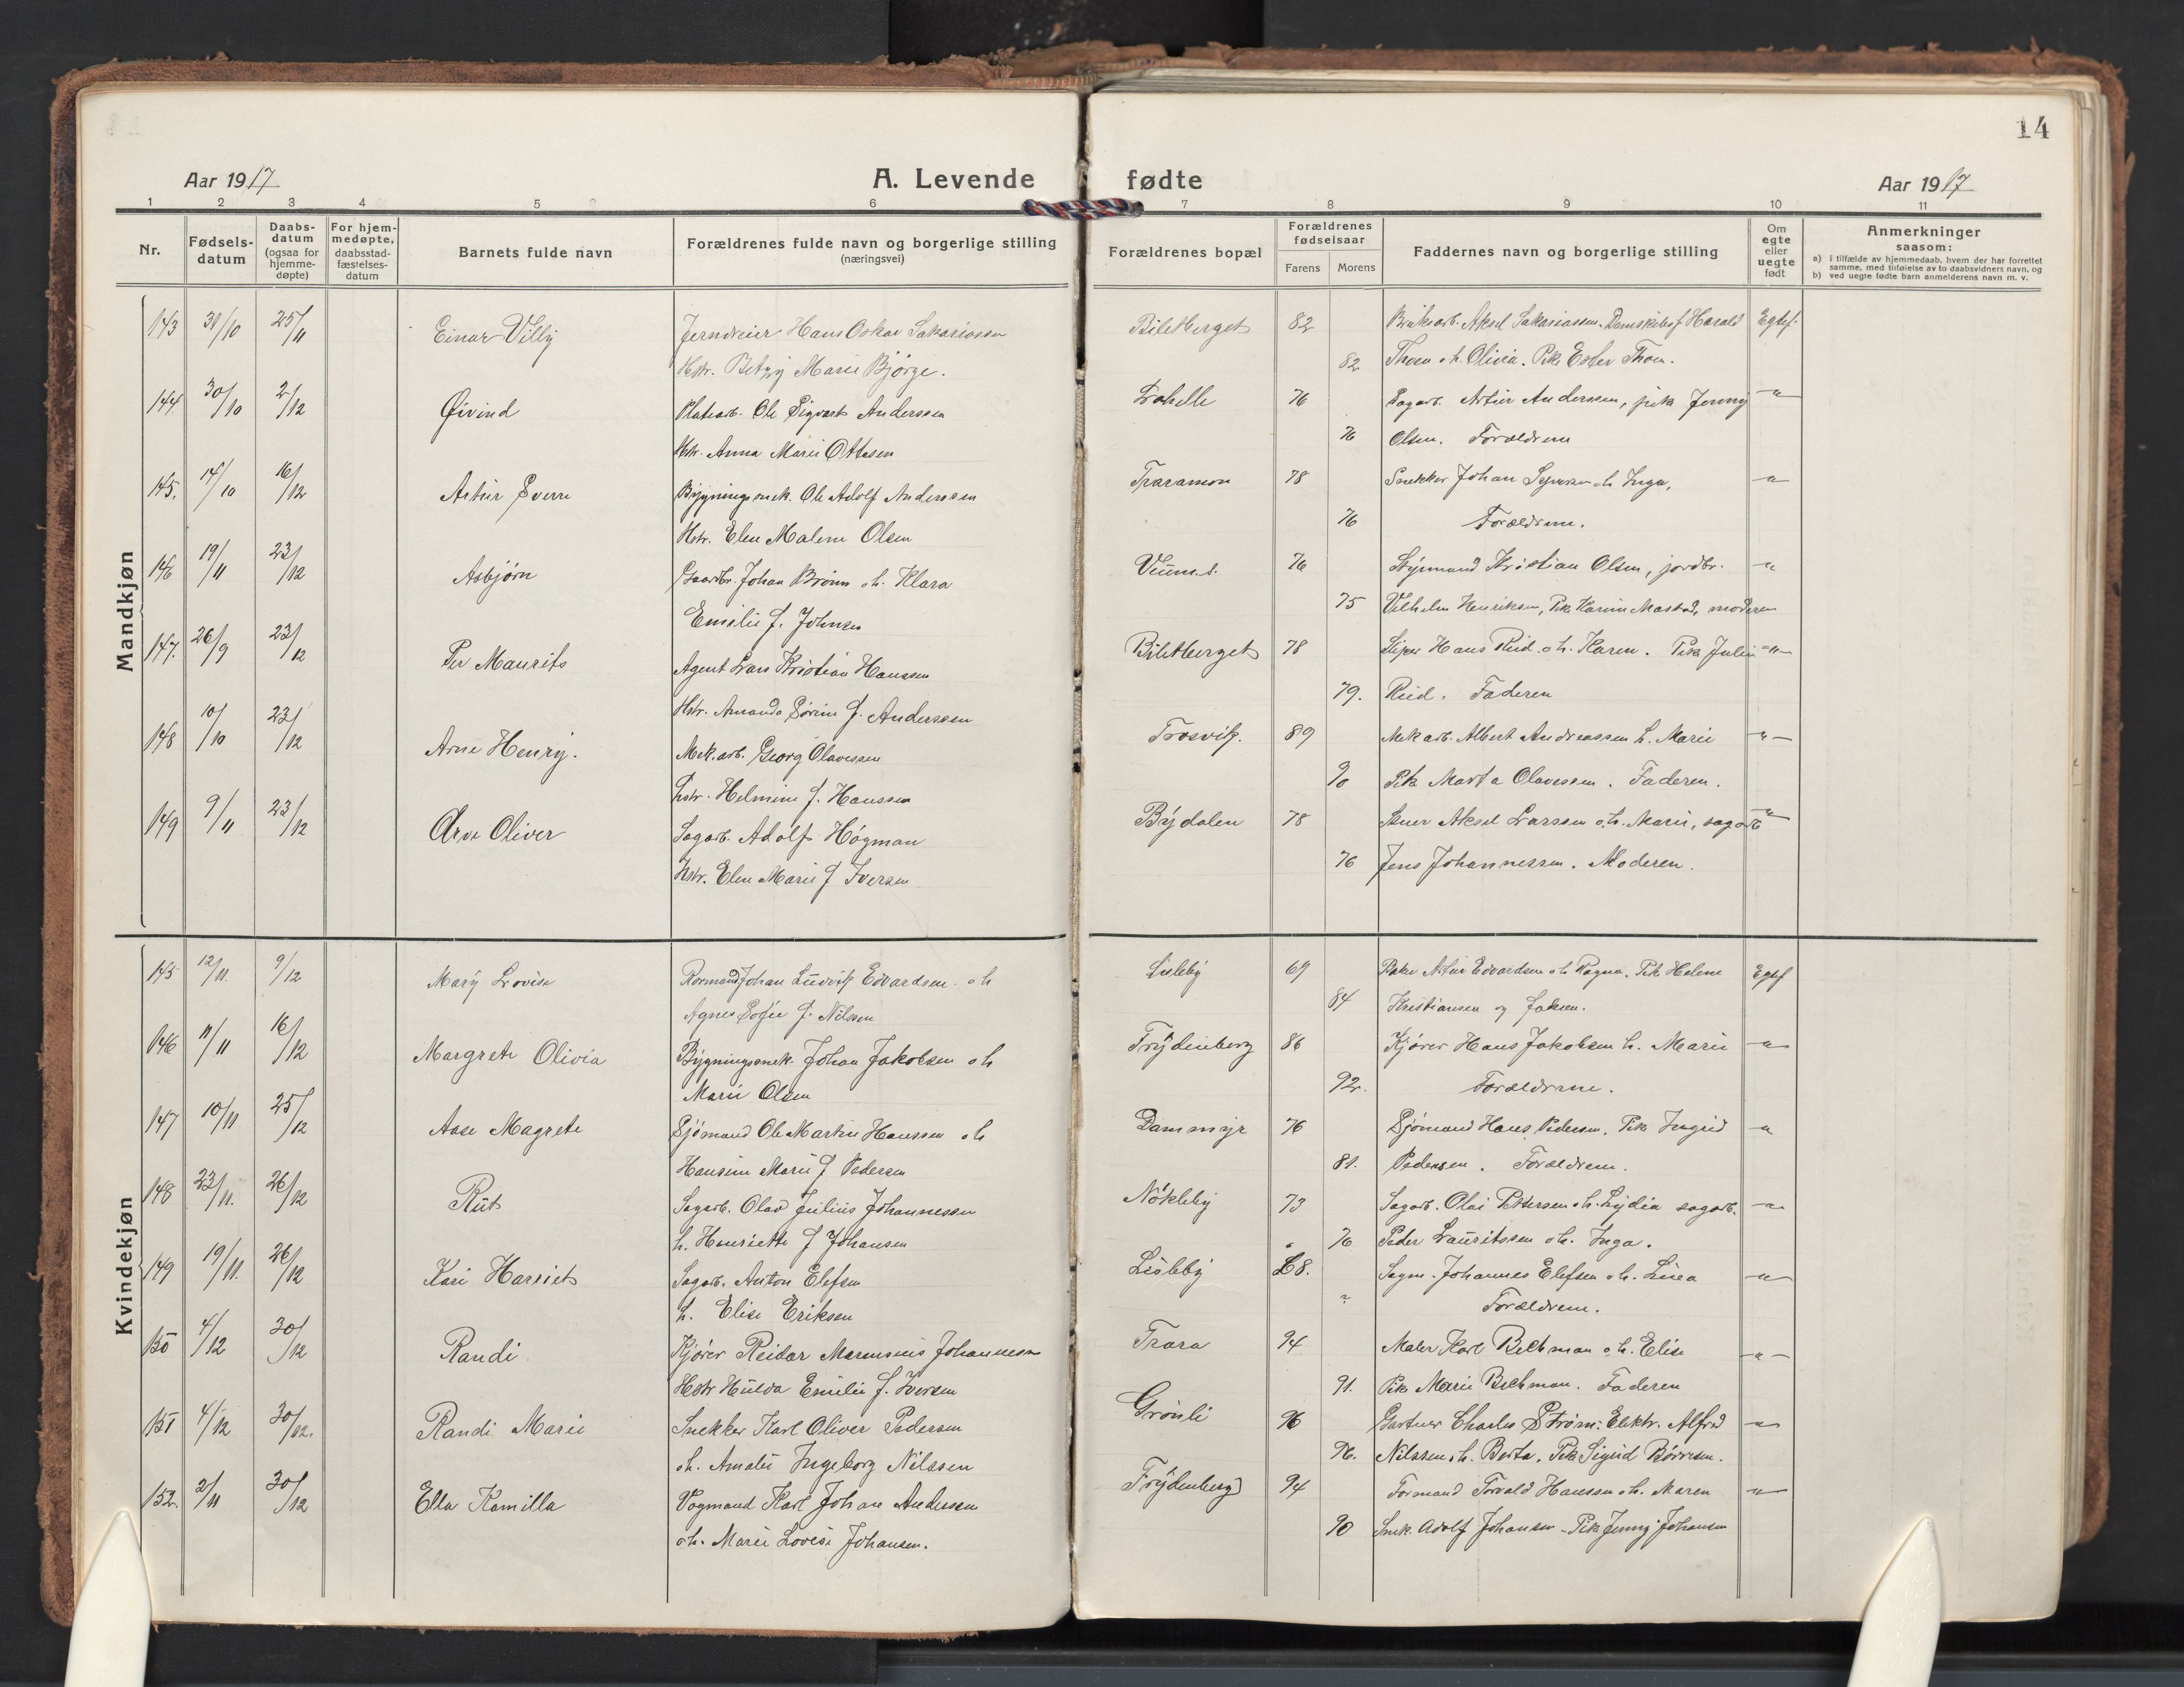 14
Aar 1917
A. Levende fødte
Aar 1917
1 2 3 4 5 6 7 8 9 10 11
Nr.
Fødsels-
datum
Daabs-
datum
(ogsaa for
hjemme-
døpte)
For hjem-
medøpte,
daabsstad-
fæstelses-
datum
Barnets fulde navn
Forældrenes fulde navn og borgerlige stilling
(næringsvei)
Forældrenes bopæl
Forældrenes
fødselsaar
Farens Morens
Faddernes navn og borgerlige stilling
Om
egte
eller
uegte
født
Anmerkninger
saasom:
a) i tilfælde av hjemmedaab, hvem der har forrettet
samme, med tilføielse av to daabsvidners navn, og
b) ved uegte fødte barn anmelderens navn m. v.
Mandkjøn
143 31/10 25/11 Einar Villy Jerndreier Hans Oskar Sakariassen Biletberget 82 Bruksarb. Aksel Sakariassen. Harald Egtef.
Hstr. Betzy Marie Bjørge. 82 Thoen o h. Olivia. Pike Ester Thoen.
144 30/10 2/12 Øivind Platearb. Ole Sigvart Anderssen Labelle 76 Sagarb. Artur Anderssen, pike Jenny -"-
Hstr. Anna Marie Ottesen 76 Olsen. Forældrene
145. 14/10 16/12 Artur Sverre Bygningsmek. Ole Adolf Anderssen Traramon 78 Snekker Johan o h Inga, -"-
Hstr. Elen Malene Olsen 76 Forældrene.
146 19/11 23/12 Asbjørn Gaardbr. Johan Brønn o h. Klara Veum. s. 76 Styrmand Kristian Olsen, jordbr. -"-
Emilie f. Johnsen 75 Vilhelm Henriksen, Pike Karine Mastad, moderen
147. 26/9 23/12 Per Maurits Agent Lars Kristian Hanssen Biletberget 78 Hans Ried o h. Karen. Pike Julie -"-
Hstr. Amanda Sørine f. Anderssen 79. Ried. Faderen
148 10/10 23/12 Arne Henry. Mek. arb. Georg Olavessen Trosvik. 89 Mek arb. Albert Andreassen h. Marie -"-
Hstr. Helmine f. Hanssen 90 Pike Marta Olavessen. Faderen.
149 9/11 23/12 Arve Oliver Sagarb. Adolf Högman Bydalen 78 Aksel Larssen o. h. Marie, sagarb -"-
Hstr. Elen Marie f Iversen 76 Jens Johannessen. Moderen.
Kvindekjøn
145 12/11. 9/12 Mary Lovise Formand Johan Ludvik Edvardsen o h Lisleby 69 Artur Edvardsen o h Ragna. Pike Helene Egtef
Agnes Sofie f. Nilssen 84 Kristiansen og Faderen.
146 11/11 16/12 Margrete Olivia Bygningsmek. Johan Jakobsen o h Frydenberg 86 Kjører Hans Jakobsen h. Marie -"-
Marie Olsen 92. Forældrene.
147 10/11 25/12 Aase Magrete Sjömand Ole Martin Hanssen o h Dammyr 76 Sjömand Hans Pedersen. Pike Ingrid -"-
Hansine Marie f Pedersen 81. Pedersen. Forældrene.
148 23/11. 26/12 Rut Sagarb. Olav Julius Johannessen Nökleby 73 Sagarb. Olai Pettersen o h. Lydia sagarb. -"-
h. Henriette f Johansen 76 Peder Lauritssen o h. Inga.
149 19/11. 26/12 Kari Harriet Sagarb. Anton Elefsen Lisleby 68. Sagm. Johannes Elefsen o h. Linea -"-
h. Elise Eriksen ? Forældrene.
150 4/12 30/12 Randi Kjörer Reidar Marensius Johannessen Trara 94 Maler Karl Bechman o h. Elise -"-
Hstr Hulda Emilie f. Iversen 91. Pike Marie Bechman. Faderen
151 4/12 30/12. Randi Marie Snekker Karl Oliver Pedersen Grönli 96 Gartner Charles Ström: Elektr. Alfred -"-
o h. Amalie Ingeborg Nilssen 96. Nilssen o h. Berta. Pike Sigrid Börresen.
152. 2/11 30/12 Ella Kamilla Vogmand Karl Johan Andersen Frydenberg 94 Formand Torvald Hanssen o h. Maren -"-
o h. Marie Lovise Johansen. 90 Snek. Adolf Johansen - Pike Jenny Johansen